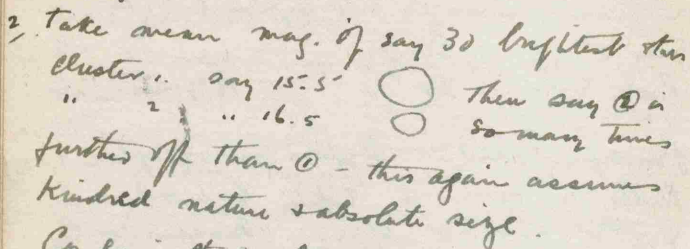 2, Take mean mag. of say 30 brightest stars
cluster 1. say 15.5 Then say ② is
" 2 " 16.5 so many times
further off than ① - this again assumes
Kindred nature & absolute size.